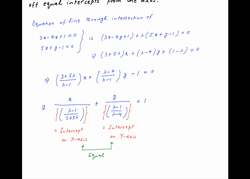 off equal intercepts from the axes.
Equation of line through intersection of
3x-4y+1=0
5x+y-1=0 } is (3x-4y+1)+λ(5x+y-1)=0
⇒ (3+5λ)x + (λ-4)y + (1-λ) = 0
⇒ (3+5λ/λ-1)x + (λ-4/λ-1)y - 1 = 0
⇒ x/[(λ-1/3+5λ)] + y/[(λ-1/λ-4)] = 1
= Intercept = Intercept
on X-axis on Y-axis
Equal